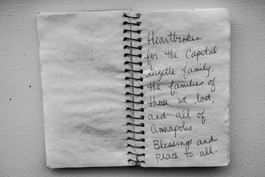 Heartbroken
for the Capital
Gazette family,
the families of
those we lost,
and all of
Annapolis.
Blessings and
peace to all.